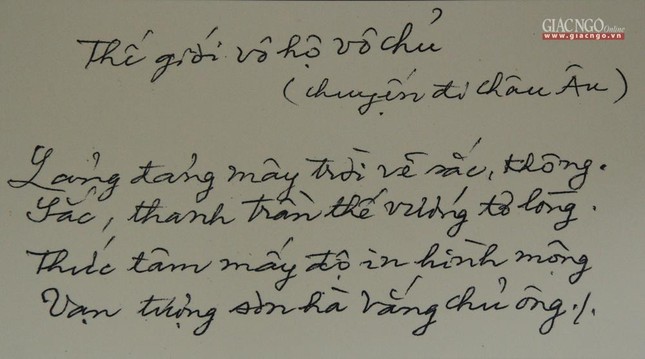 GIACNGO Online
www.giacngo.vn
Thế giới vô hộ vô chủ
(chuyến đi châu Âu)
Lảng đảng mây trời về sắc, không.
Sắc, thanh trần thế vướng tơ lòng.
Thức tâm mấy độ in hình mộng
Vạn tượng sơn hà vắng chủ ông./.